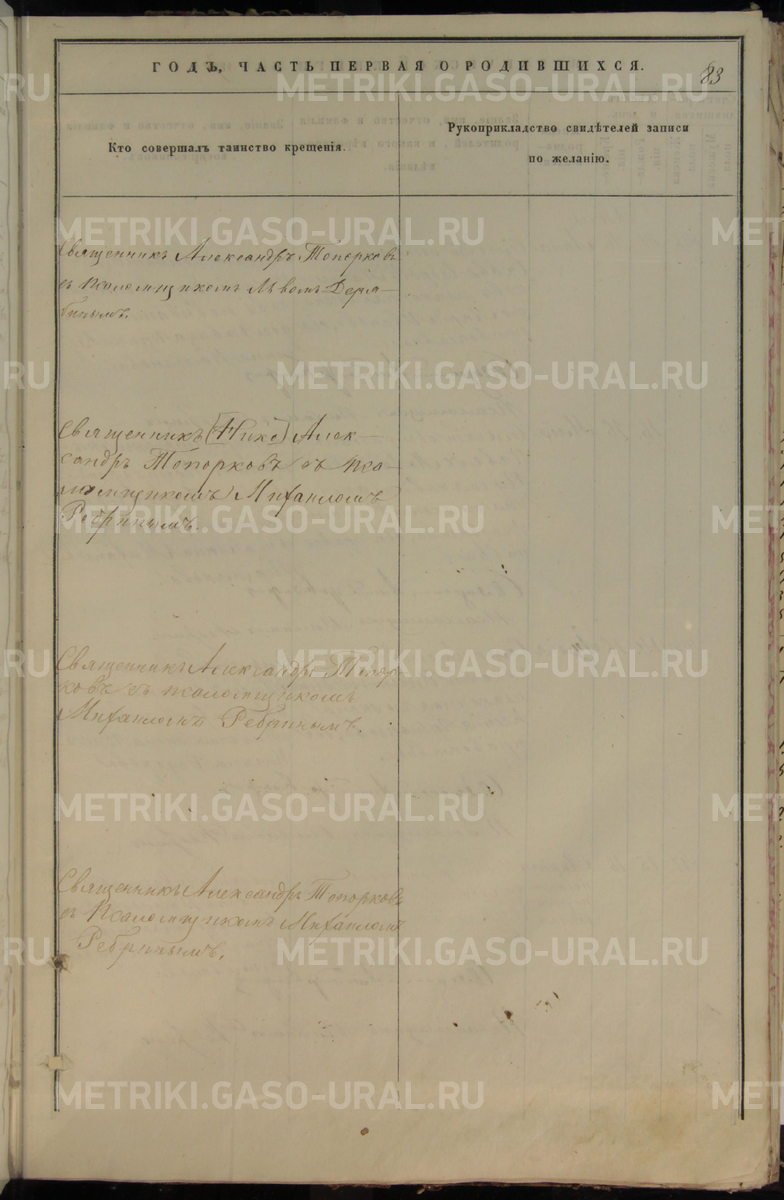 ГОДЪ, ЧАСТЬ ПЕРВАЯ О РОДИВШИХСЯ.
83
Кто совершалъ таинство крещенія.
Рукоприкладство свидѣтелей записи
по желанію.
Священникъ Александръ Топорковъ
съ псаломщикомъ Львомъ Деря-
бинымъ.
Священникъ Алек-
сандръ Топорковъ съ пса-
ломщикомъ Михаиломъ
Ребринымъ.
Священникъ Александръ Топор-
ковъ съ псаломщикомъ
Михаиломъ Ребринымъ.
Священникъ Александръ Топорковъ
съ псаломщикомъ Михаиломъ
Ребринымъ.
METRIKI.GASO-URAL.RU